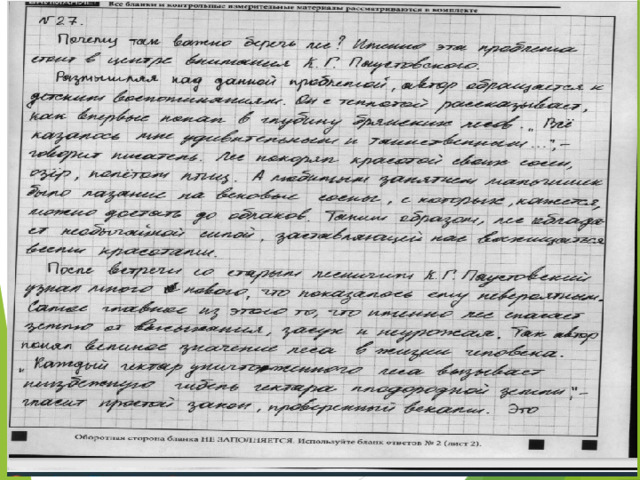 Все бланки и контрольные измерительные материалы рассматриваются в комплекте
№27.
Почему так важно беречь лес? Именно эта проблема
стоит в центре внимания К. Г. Паустовского.
Размышляя над данной проблемой, автор обращается к
детским воспоминаниям. Он с теплотой рассказывает,
как впервые попал в глубину брянских лесов. „Всё
казалось мне удивительным и таинственным...", –
говорит писатель. Лес покорял красотой своих сосен,
озёр, полётом птиц. А любимым занятием мальчишек
было лазание на вековые сосны, с которых, кажется,
можно достать до облаков. Таким образом, лес облада-
ет необычайной силой, заставляющей нас восхищаться
всеми красотами.
После встречи со старым лесничим К. Г. Паустовский
узнал много нового, что показалось ему невероятным.
Самое главное из этого то, что именно лес спасает
землю от высыхания, засух и неурожая. Так автор
понял великое значение леса в жизни человека.
„Каждый гектар уничтоженного леса вызывает
неизбежную гибель гектара плодородной земли", –
гласит простой закон, проверенный веками. Это
Оборотная сторона бланка НЕ ЗАПОЛНЯЕТСЯ. Используйте бланк ответов № 2 (лист 2).